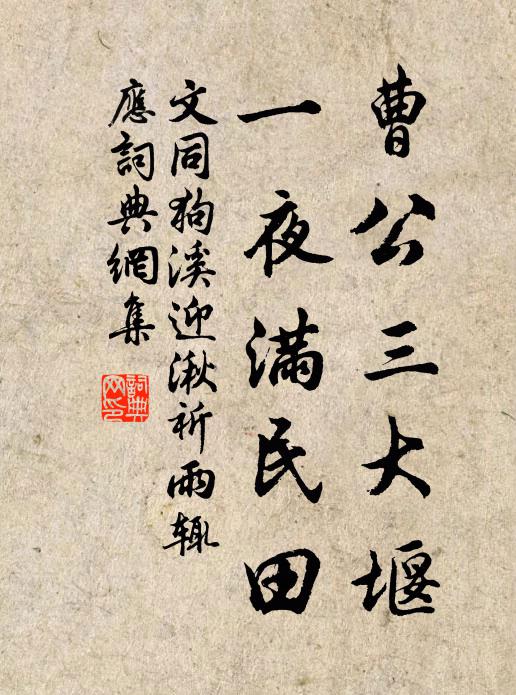 曹公三大堰
一夜满民田
文同狗溪迎湫祈雨辄
應詞典網集
詞典
网印